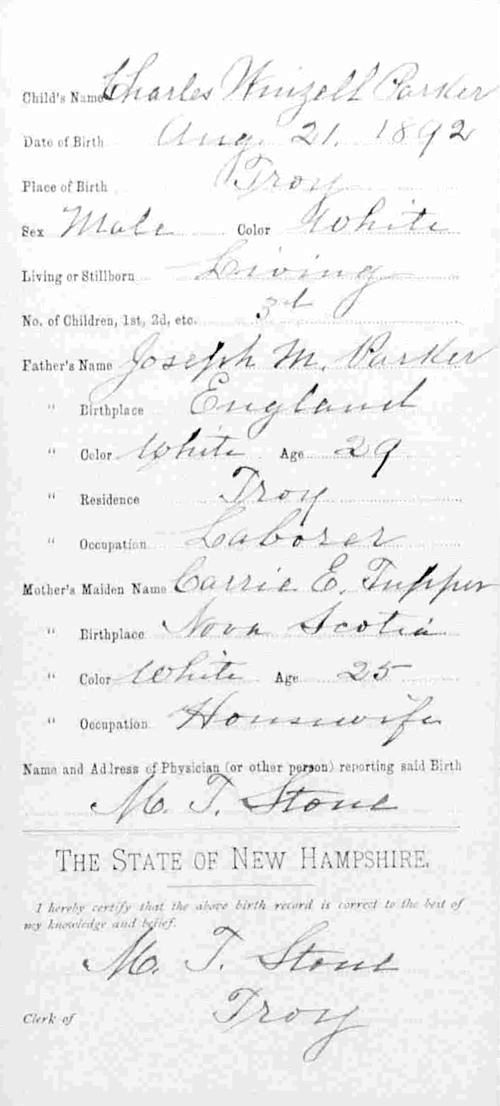 Child's Name Charles Winzell Parker
Date of Birth Aug. 21, 1892
Place of Birth Troy
Sex Male Color White
Living or Stillborn Living
No. of Children, 1st, 2d, etc. 3d
Father's Name Joseph M. Parker
" Birthplace England
" Color White Age 29
" Residence Troy
" Occupation Laborer
Mother's Maiden Name Carrie E. Tupper
" Birthplace Nova Scotia
" Color White Age 25
" Occupation Housewife
Name and Address of Physician (or other person) reporting said Birth
M. T. Stone
THE STATE OF NEW HAMPSHIRE.
I hereby certify that the above birth record is correct to the best of
my knowledge and belief.
M. T. Stone
Clerk of Troy